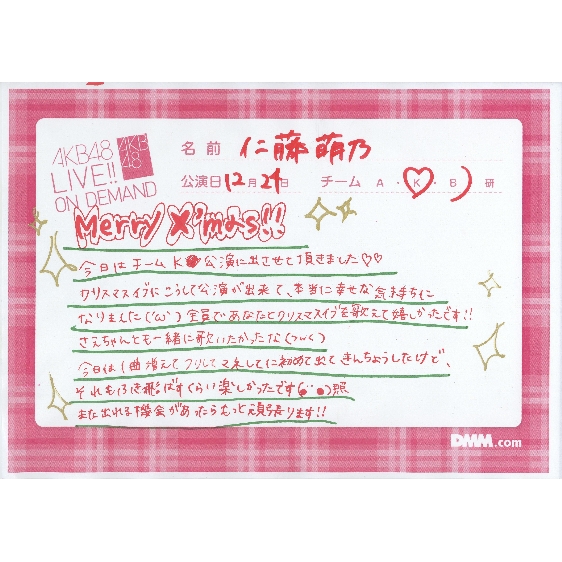 AKB48
LIVE!!
ON DEMAND
AKB
48
名前 仁藤萌乃
公演日 12月24日 チーム A・K・B 研
Merry X'mas!!
今日はチームK公演に出させて頂きました♡♡
クリスマスイブにこうして公演が出来て、本当に幸せな気持ちに
なりました('ω') 全員であなたとクリスマスイブを歌えて嬉しかったです!!
さえちゃんとも一緒に歌いたかったな
今日は1曲増えて
に初めて出てきんちょうしたけど、
それもふき飛ばすくらい楽しかったです 照
また出れる機会があったらもっと頑張ります!!
DMM.com